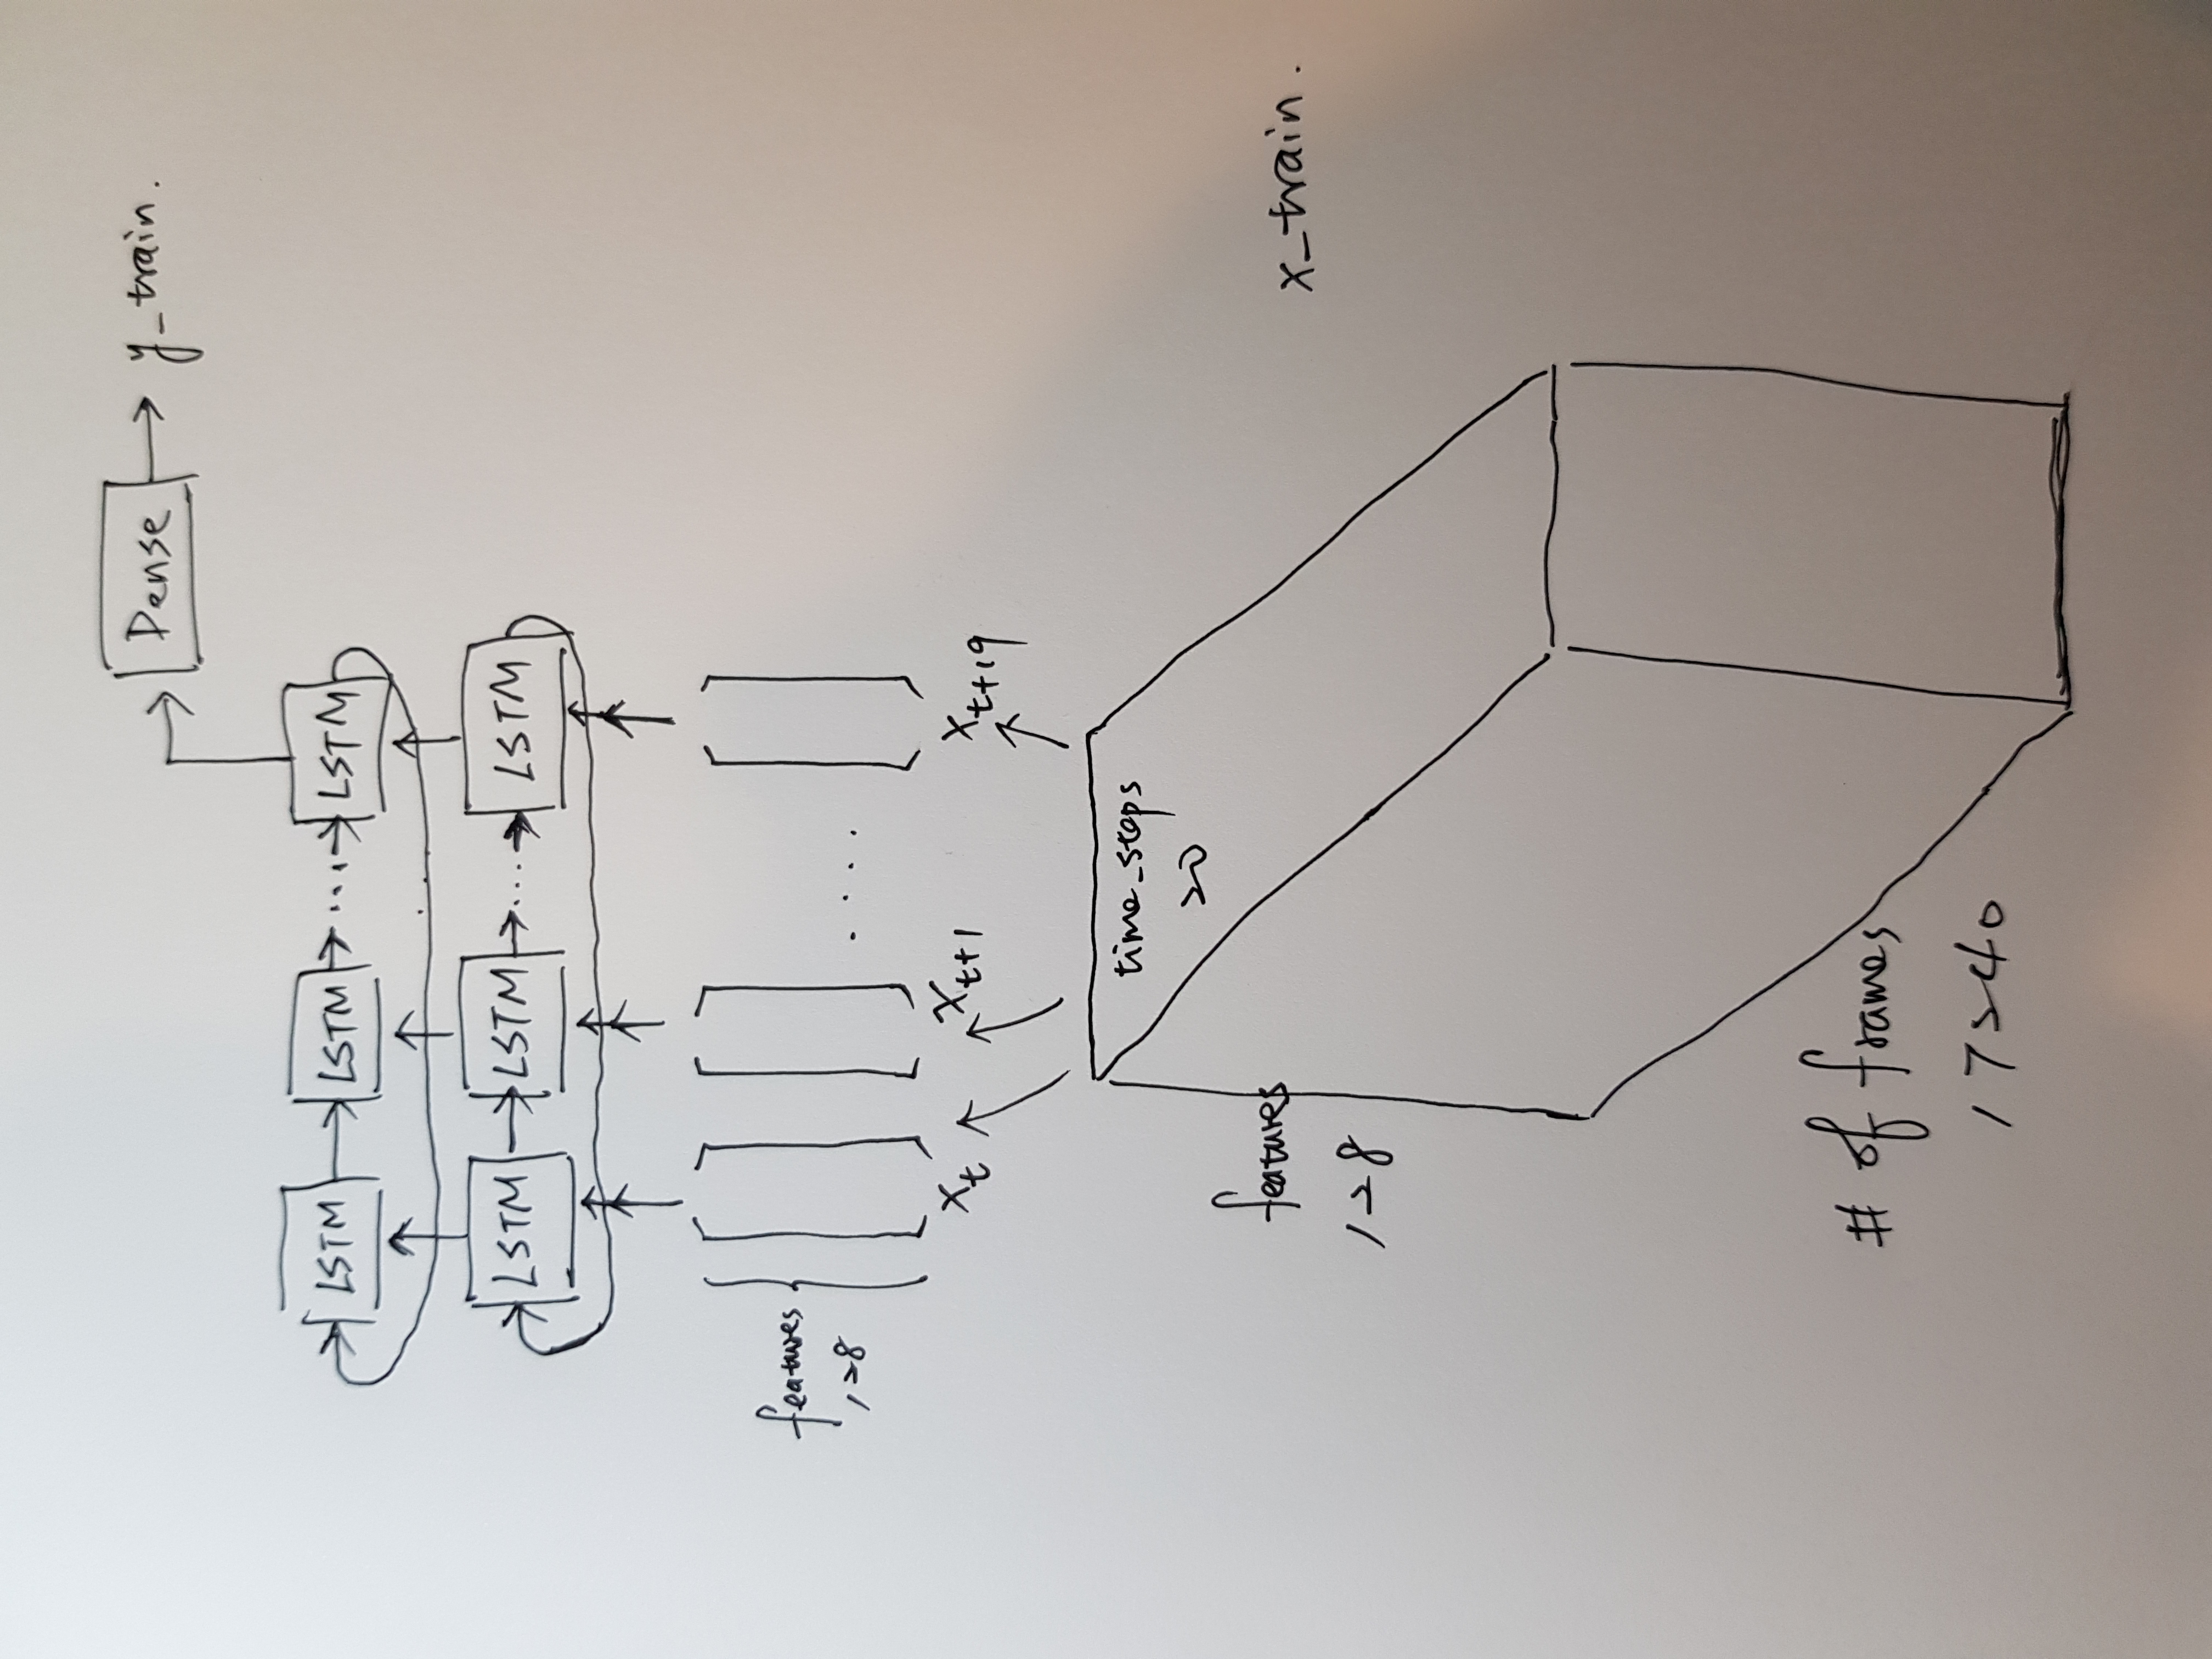 Dense
y_train.
LSTM LSTM ... LSTM
LSTM LSTM ... LSTM
features
128
....
x_t x_t+1 x_t+19
time_steps
20
features
128
x_train.
# of frames
17240